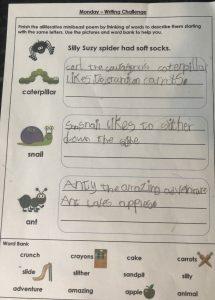 Monday – Writing Challenge
Finish the alliterative minibeast poem by thinking of words to describe them starting
with the same letters. Use the pictures and word bank to help you.
Silly Suzy spider had soft socks.
carl the courageous caterpillar
likes to crunch on carrots
caterpillar
snail likes to slither
down the slide
snail
Anty the amazing adventure
Ant takes apples
ant
Word Bank
crunch crayons cake carrots
slide slither sandpit silly
adventure amazing apple animal